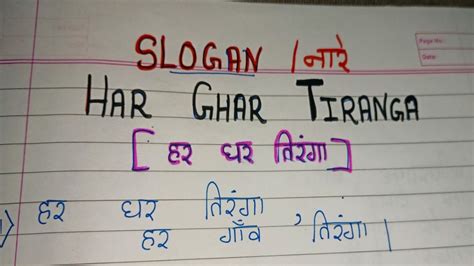 Page No.:
Date:
SLOGAN / नारे
HAR GHAR TIRANGA
[ हर घर तिरंगा ]
हर घर तिरंगा
हर गाँव , तिरंगा |